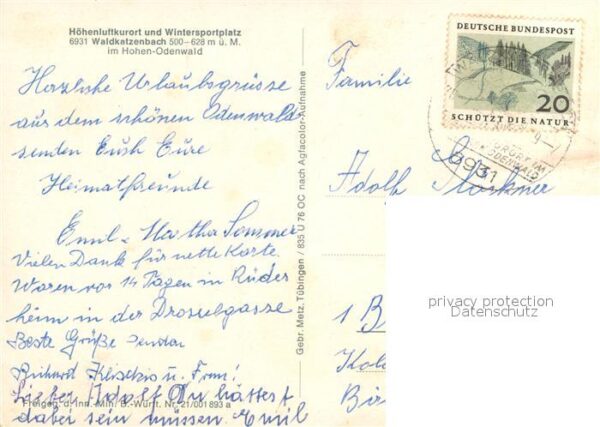 Höhenluftkurort und Wintersportplatz
6931 Waldkatzenbach 500–628 m ü. M.
im Hohen-Odenwald
Herzliche Urlaubsgrüsse
aus dem schönen Odenwald
senden Euch Eure
Heimatfreunde
Emil u. Martha Sommer
Vielen Dank für nette Karte.
Waren vor 14 Tagen in Rüdes
heim in der Drosselgasse
Beste Grüße senden
Richard u. Frau!
Lieber Adolf Du hättest
dabei sein müssen. Emil
Freigeg. d. Inn. Min. B.-Württ. Nr. 21/001893 a
Gebr. Metz, Tübingen / 835 U 76 OC nach Agfacolor-Aufnahme
DEUTSCHE BUNDESPOST
20
SCHÜTZT DIE NATUR
ODENWALD
6931
Familie
Adolf
1 B
Kol
Bir
privacy protection
Datenschutz